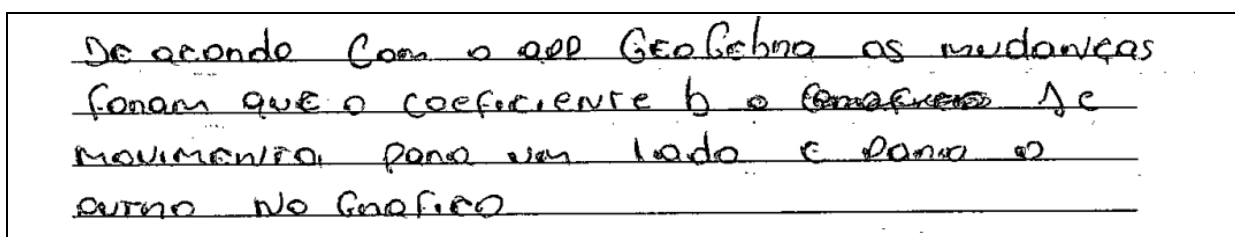 De acordo com o app GeoGebra as mudanças
foram que o coeficiente b o se
movimenta para um lado e para o
outro no Grafico